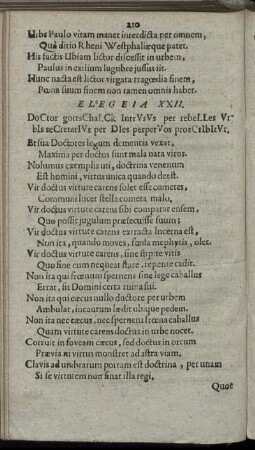 210
Urbs Paulo vitam manet interdicta per omnem,
Quà ditio Rheni Westphaliæque patet.
His factis Ubiam lictor discessit in urbem,
Paulus in exilium lugubre jussus iit.
Hunc nacta est lictor virgata tragœdia finem,
Pœna suum finem non tamen omnis habet.
ELEGEIA XXII.
DoCtor gottsChaLCk IntrVsVs per rebeLLes Vr-
bIs seCretarIVs per DIes perpetVos prosCrIbItVr.
Et sua Doctores legum dementis vexat,
Maxima per doctos sunt mala nata viros.
Nolumus exemplis uti, doctrina venenum
Est homini, virtus unica quando deest.
Vir doctus virtute carens solet esse cometes,
Communi lucet stella cometa malo.
Vir doctus virtute carens sibi comparat ensem,
Quo possit jugulum præsecuisse suum;
Vir doctus virtute carens extracta lucerna est,
Non ita, quando moves, fœda mephytis, olet.
Vir doctus virtute carens, sine stipite vitis
Quo sine cum nequeat stare, repente cadit.
Non ita qui frœnum spernens sine lege caballus
Errat, fit Domini certa ruina sui.
Non ita qui cæcus nullo ductore per urbem
Ambulat, incautum lædit ubique pedem.
Non ita nec cæcus, nec spernens frœna caballus
Quam virtute carens doctus in urbe nocet.
Corruit in foveam cæcus, sed doctus in orcum
Prævia ni virtus monstret ad astra viam.
Clavis ad umbrarum portam est doctrina, per unam
Si se virtutem non sinat illa regi.
Quot